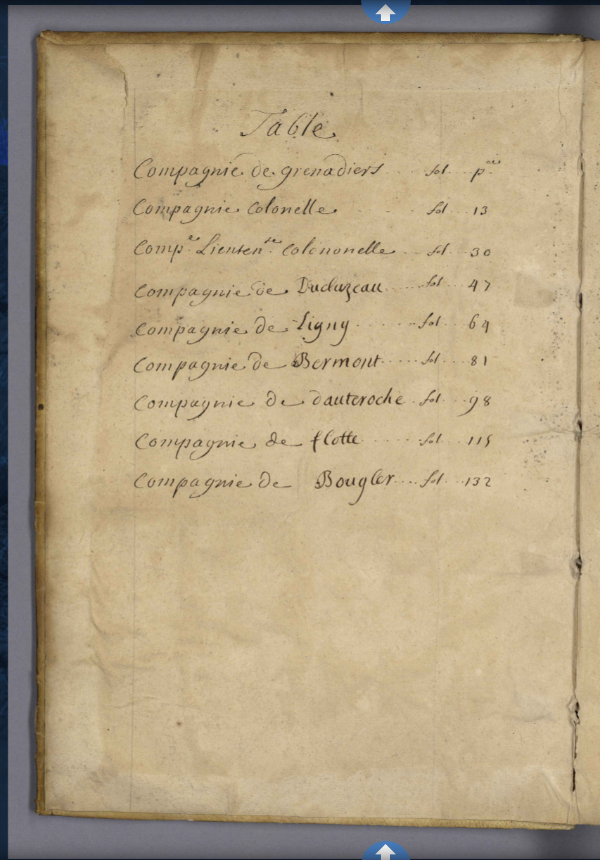 Table
Compagnie de grenadiers fol p^re
Compagnie Colonelle fol 13
Comp^e Lieuten^te Colononelle fol 30
Compagnie de Ducluzeau fol 47
Compagnie de Ligny fol 64
Compagnie de Bermont fol 81
Compagnie de dauteroche fol 98
Compagnie de flotte fol 115
Compagnie de Bougler fol 132